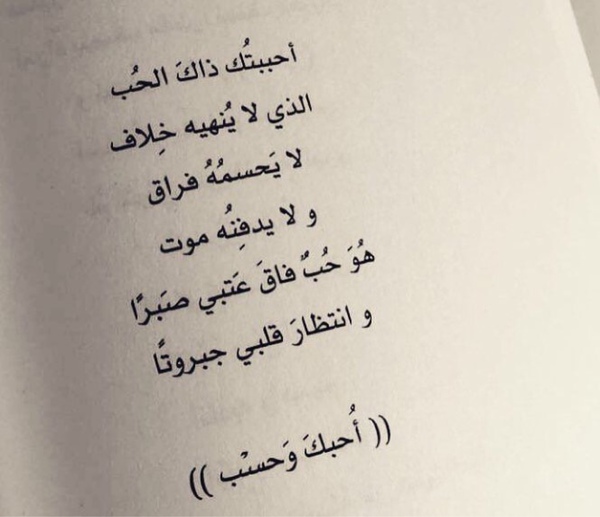 أحببتُك ذاكَ الحُب
الذي لا يُنهيه خِلاف
لا يَحسمُهُ فراق
و لا يدفِنُه موت
هُوَ حُبٌ فاقَ عَتبي صَبرًا
و انتظارَ قلبي جبروتًا
(( أُحبكَ وَحسْب ))